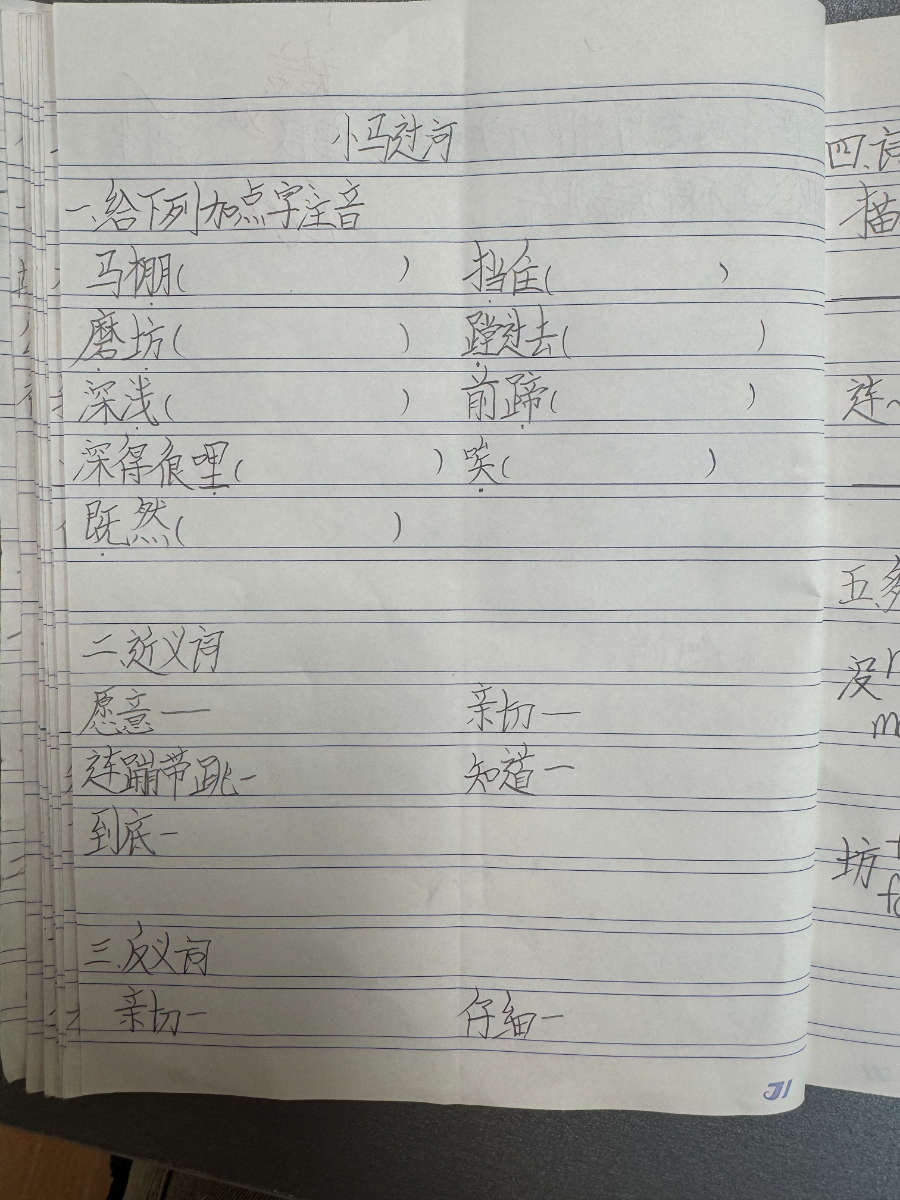 小马过河
一、给下列加点字注音
马棚(          ) 挡住(          )
磨坊(          ) 蹚过去(          )
深浅(          ) 前蹄(          )
深得很哩(          ) 唉(          )
既然(          )
二、近义词
愿意— 亲切—
连蹦带跳— 知道—
到底—
三、反义词
亲切— 仔细—
四、
描
连
五、
没
坊